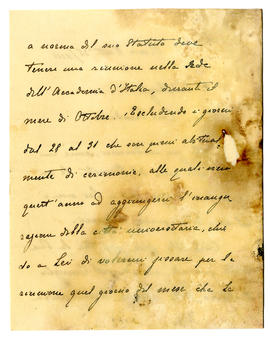 a norma del suo Statuto deve
tenere una riunione nella sede
dell'Accademia d'Italia, durante il
mese di Ottobre. Escludendo i giorni
dal 28 al 31 che son pieni abitual
mente di cerimonie, alle quali in
quest'anno ad aggiungersi l'inaugu
razione della città universitaria, chie
do a Lei di volermi fissare per la
riunione quel giorno del mese che Le